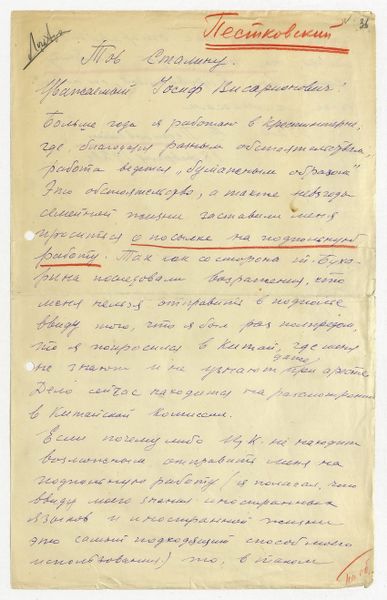 Пестковский
36
Тов Сталину.
Уважаемый Иосиф Висарионович!
Больше года я работаю в Крестинтерне,
где благодаря разным обстоятельствам,
работа ведется „бумажным образом“
Это обстоятельство, а также невзгоды
семейной жизни заставили меня
проситься о посылке на подпольную
работу. Так как со стороны т. Буха-
рина последовали возражения, что
меня нельзя отправить в подполье
ввиду того, что я был раз полпредом,
то я попросился в Китай, где меня
не знают и не узнают даже при аресте
Дело сейчас находится на рассмотрении
в Китайской Комиссии.
Если почему либо ЦК не находит
возможным отправить меня на
подпольную работу (я полагал, что
ввиду моего знания иностранных
языков и иностранной жизни
это самый подходящий способ моего
использования) то, в таком